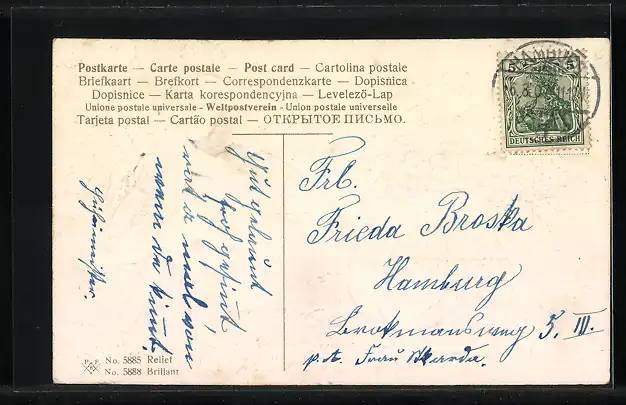 Postkarte — Carte postale — Post card — Cartolina postale
Briefkaart — Brefkort — Correspondenzkarte — Dopisnica
Dopisnice — Karta korespondencyjna — Levelező-Lap
Unione postale universale - Weltpostverein - Union postale universelle
Tarjeta postal — Cartão postal — ОТКРЫТОЕ ПИСЬМО.
5 5
DEUTSCHES REICH
HAMBURG
Frb.
Frieda Broska
Hamburg
Brokmannsweg 5. III.
p. A. Frau Skarda.
Gut gelaunt
froh gesinnt
wann du
P. F. No. 5885 Relief
No. 5888 Brillant